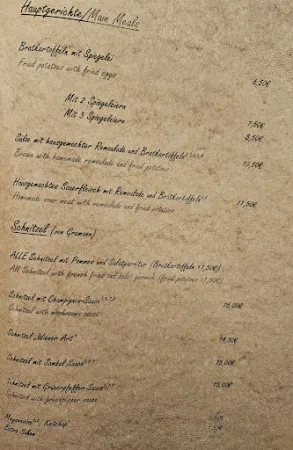 Hauptgerichte/Main Meals
Bratkartoffeln mit Spiegelei
Fried potatoes with fried eggs
6,50€
Mit 2 Spiegeleiern
7,50€
Mit 3 Spiegeleiern
8,50€
Sülze mit hausgemachter Remoulade und Bratkartoffeln
Brawn with homemade remoulade and fried potatoes
10,50€
Hausgemachtes Sauerfleisch mit Remoulade und Bratkartoffeln
Homemade sour meat with remoulade and fried potatoes
11,50€
Schnitzel (von Gramann)
ALLE Schnitzel mit Pommes und Salatgarnitur (Bratkartoffeln +1,50€)
All Schnitzel with french fries and salat garnish (fried potatoes +1,50€)
Schnitzel mit Champignon-Sauce
Schnitzel with mushrooms sauce
15,00€
Schnitzel „Wiener Art"
14,50€
Schnitzel mit Sambal Sauce
15,00€
Schnitzel mit Grüner-Pfeffer-Sauce
15,00€
Schnitzel with greenpepper sauce
Mayonnaise, Ketchup
Extra Sauce